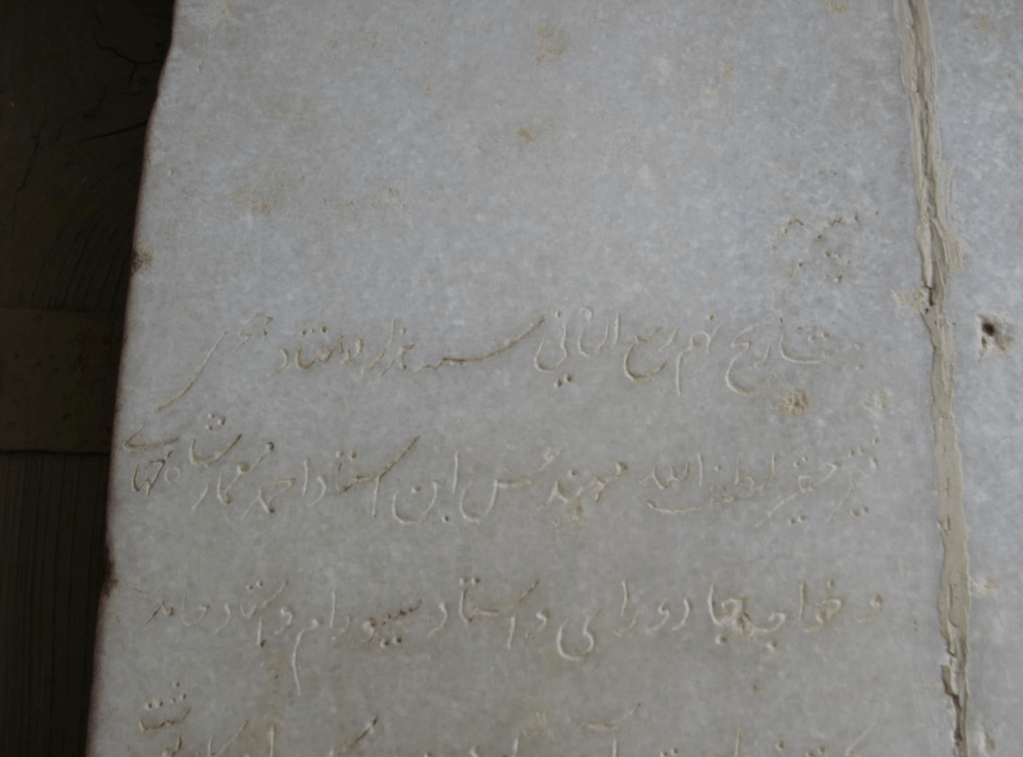 بتاریخ نهم ربیع الثانی سنه هزار و هفتاد هجری
فقیر حقیر لطف الله مهندس ابن استاد احمد معمار شاه جهانی
و خواجه جادو رای و استاد سیورام و استاد حامد